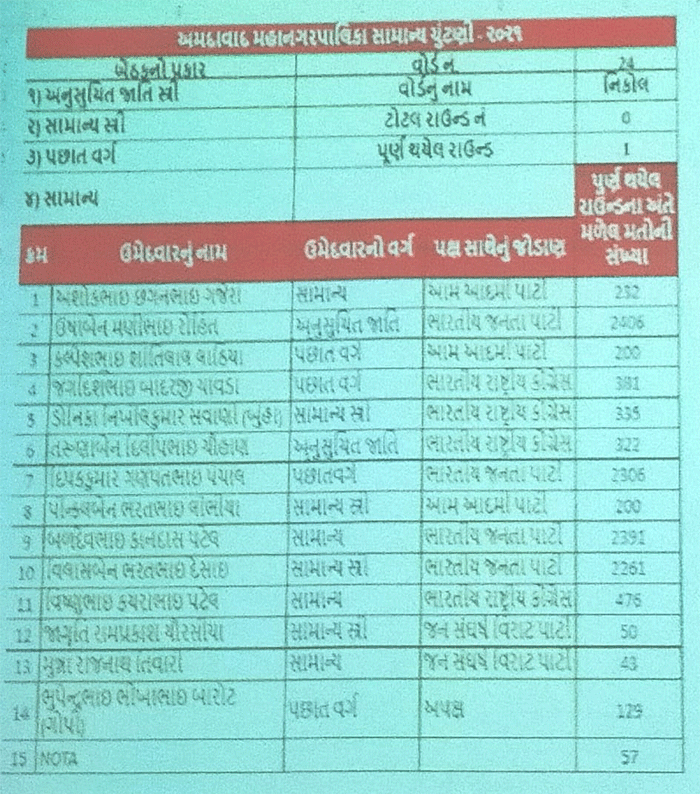 અમદાવાદ મહાનગરપાલિકા સામાન્ય ચુંટણી - ૨૦૨૧
બેઠકનો પ્રકાર વોર્ડ નં 24
૧) અનુસુચિત જાતિ સ્ત્રી વોર્ડનું નામ નિકોલ
૨) સામાન્ય સ્ત્રી ટોટલ રાઉન્ડ નં 0
૩) પછાત વર્ગ પૂર્ણ થયેલ રાઉન્ડ 1
૪) સામાન્ય
પુર્ણ થયેલ
રાઉન્ડના અંતે
મળેલ મતોની
સંખ્યા
ક્રમ ઉમેદવારનું નામ ઉમેદવારનો વર્ગ પક્ષ સાથેનું જોડાણ
1 અશોકભાઇ છગનભાઇ ગજેરા સામાન્ય આમ આદમી પાર્ટી 232
2 ઉષાબેન મણીભાઇ રોહિત અનુસુચિત જાતિ ભારતીય જનતા પાર્ટી 2406
3 કલ્પેશભાઇ શાંતિલાલ લાઠિયા પછાત વર્ગ આમ આદમી પાર્ટી 200
4 જગદિશભાઇ બાદરજી ચાવડા પછાત વર્ગ ભારતીય રાષ્ટ્રીય કોંગ્રેસ 381
5 ડોનિકા નિખીલકુમાર સવાણી (બુહા) સામાન્ય સ્ત્રી ભારતીય રાષ્ટ્રીય કોંગ્રેસ 335
6 તરૂણાબેન દિલીપભાઇ ચૌહાણ અનુસુચિત જાતિ ભારતીય રાષ્ટ્રીય કોંગ્રેસ 322
7 દિપકકુમાર ગણપતભાઇ પંચાલ પછાતવર્ગ ભારતીય જનતા પાર્ટી 2306
8 પીન્કલબેન ભરતભાઇ લીંબીયા સામાન્ય સ્ત્રી આમ આદમી પાર્ટી 200
9 બળદેવભાઇ કાનદાસ પટેલ સામાન્ય ભારતીય જનતા પાર્ટી 2391
10 વિલાસબેન ભરતભાઇ દેસાઇ સામાન્ય સ્ત્રી ભારતીય જનતા પાર્ટી 2261
11 વિષ્ણુભાઇ કચરાભાઇ પટેલ સામાન્ય ભારતીય રાષ્ટ્રીય કોંગ્રેસ 476
12 જાગૃતિ રામપ્રકાશ ચૌરસીયા સામાન્ય સ્ત્રી જન સંઘર્ષ વિરાટ પાર્ટી 50
13 મુન્ના રાજનાથ તિવારી સામાન્ય જન સંઘર્ષ વિરાટ પાર્ટી 43
14 ભુપેન્દ્રભાઇ ભીખાભાઇ બારોટ
(ગોપી) પછાત વર્ગ અપક્ષ 129
15 NOTA 57